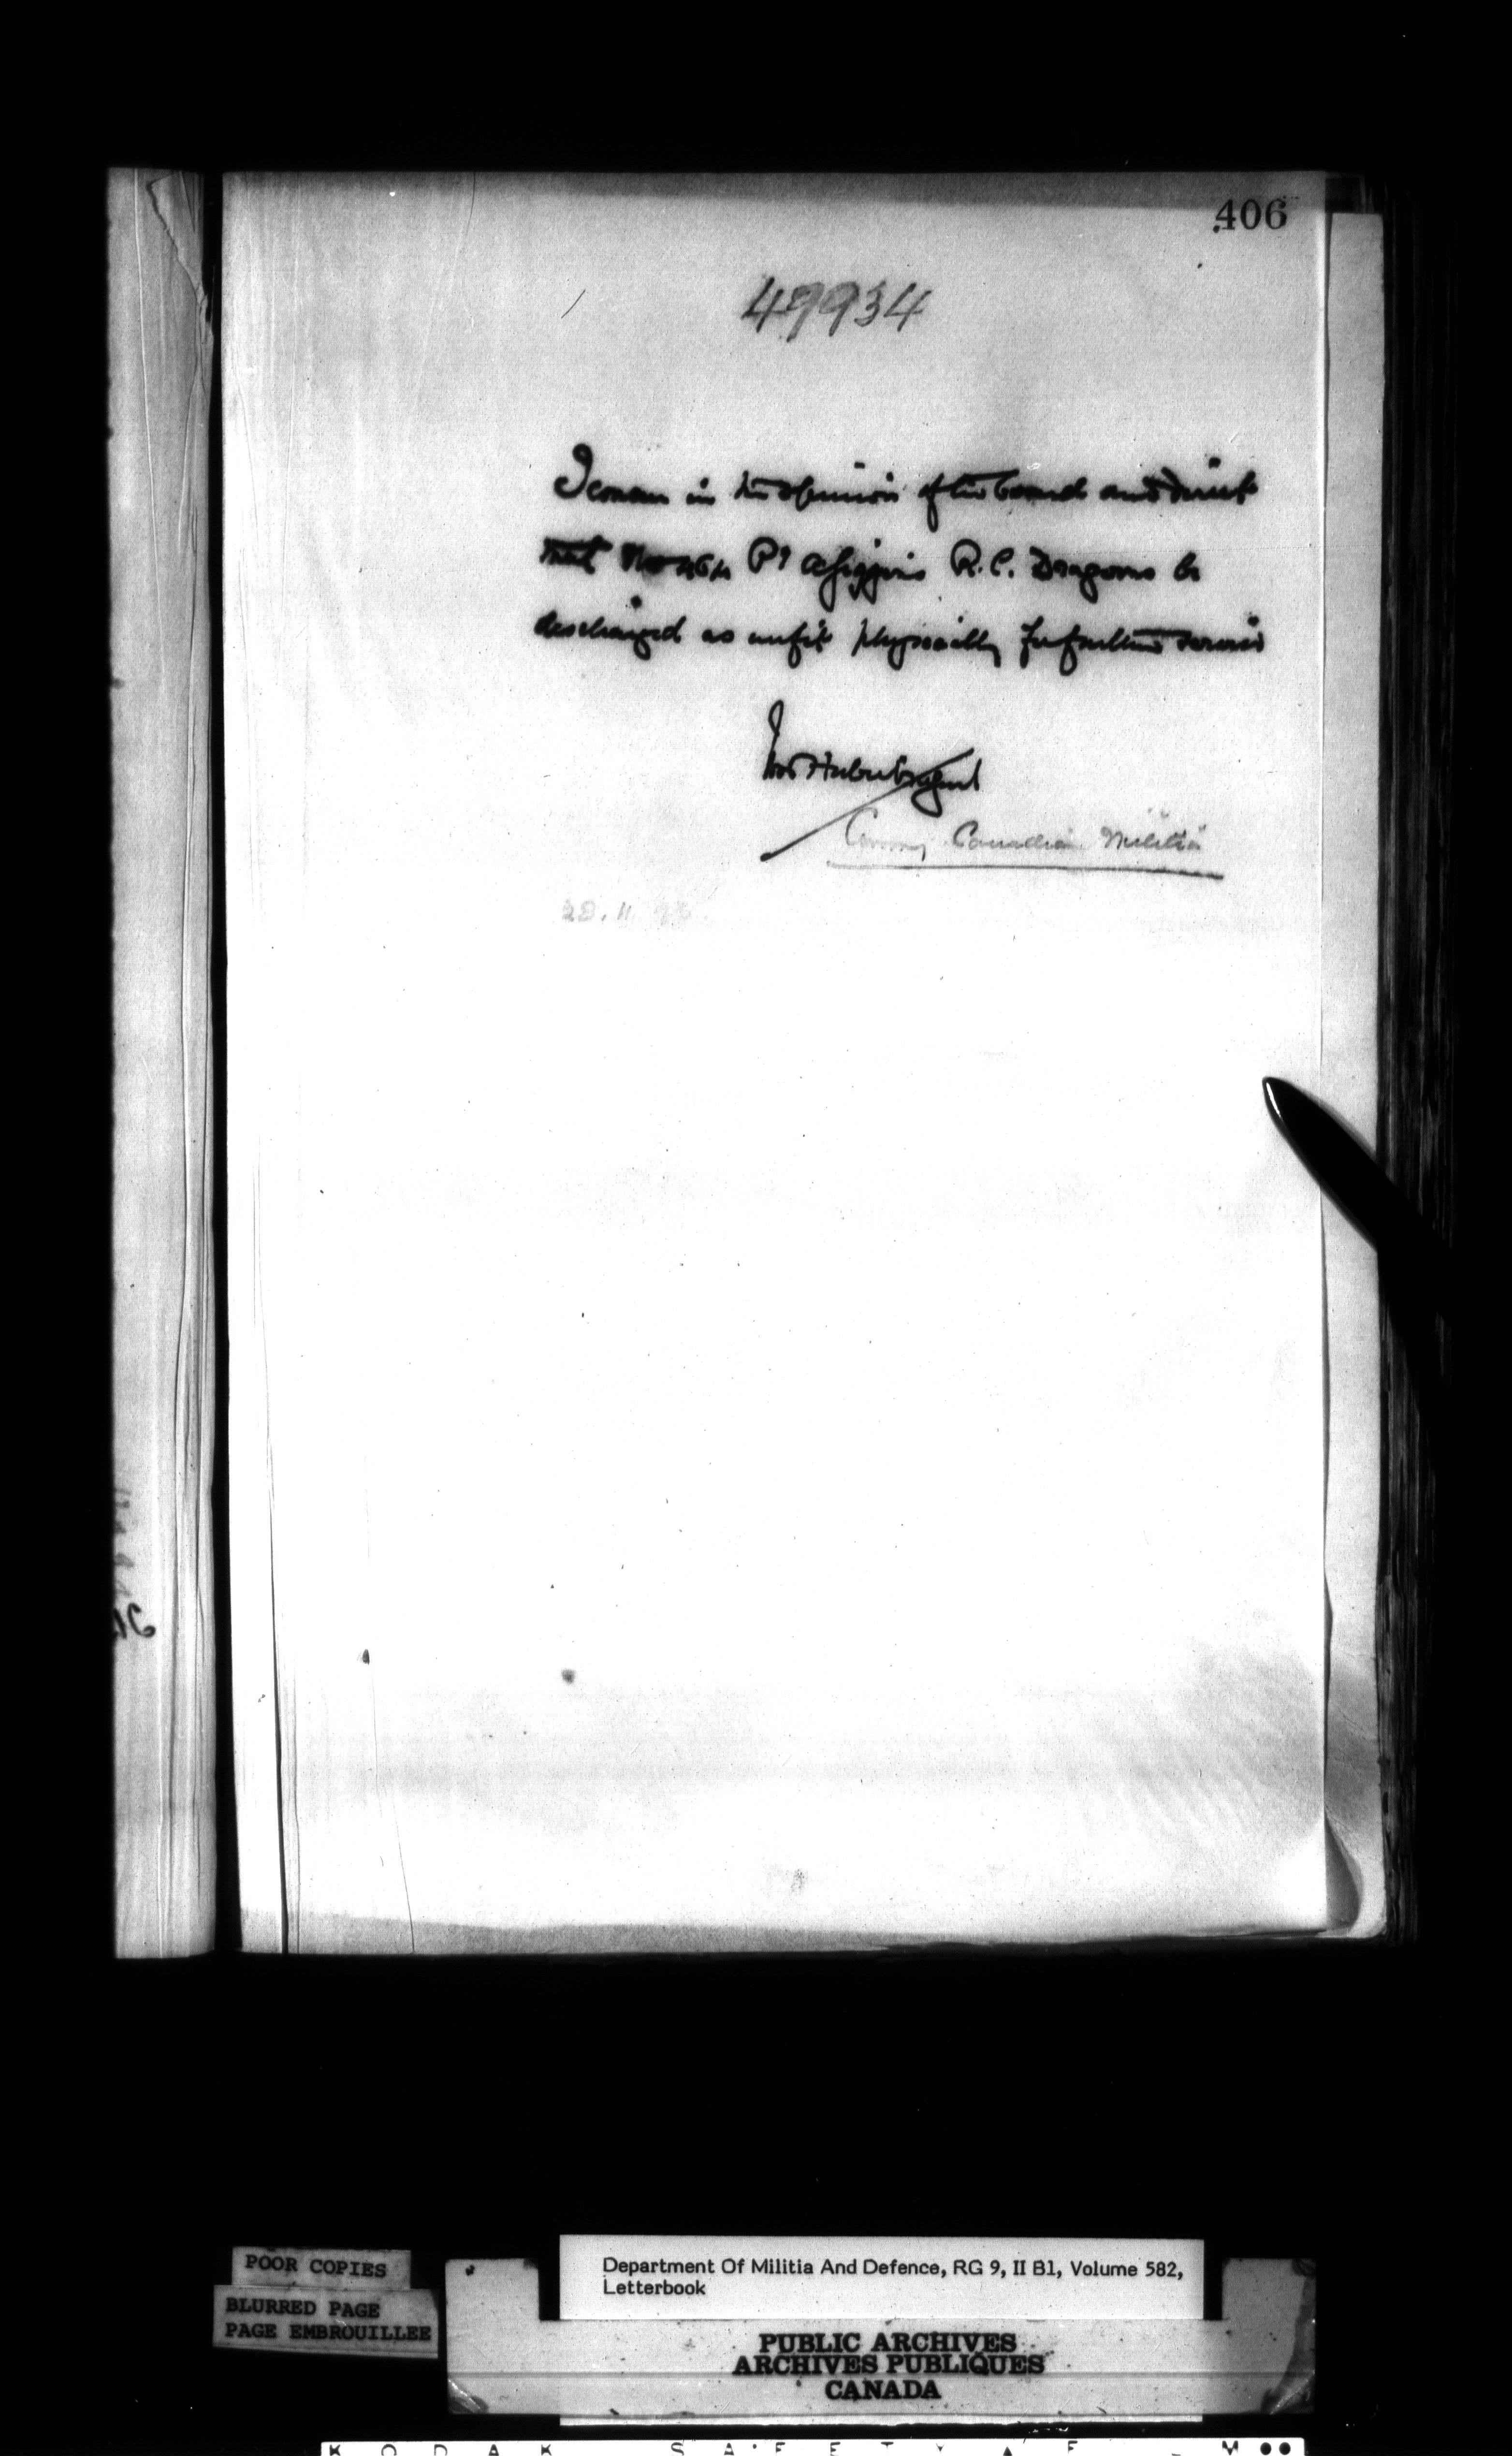 406
49934
I concur in the opinion of the board and direct
that No 464 Pt Higgins R.C. Dragoons be
discharged as unfit physically for further service
Ivor Herbert M Genl
Commg Canadian Militia
20. 11.
POOR COPIES
BLURRED PAGE
PAGE EMBROUILLEE
Department Of Militia And Defence, RG 9, II B1, Volume 582,
Letterbook
PUBLIC ARCHIVES
ARCHIVES PUBLIQUES
CANADA
KODAK SAFETY